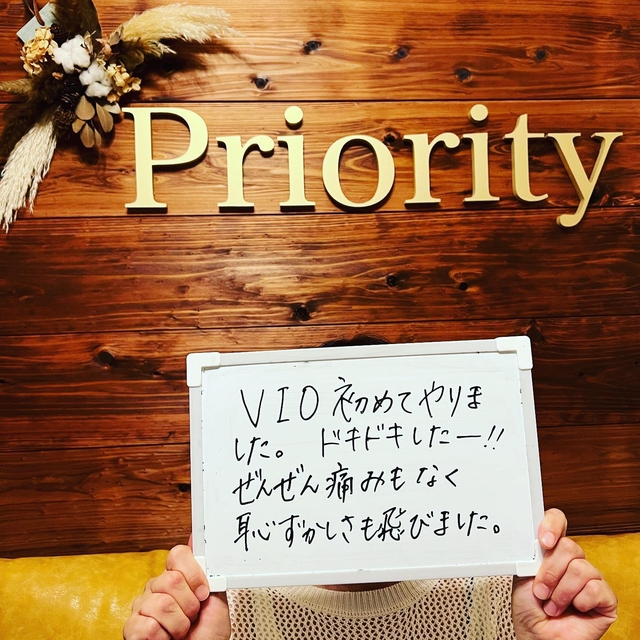 Priority
VIO初めてやりま
した。ドキドキしたー!!
ぜんぜん痛みもなく
恥ずかしさも飛びました。